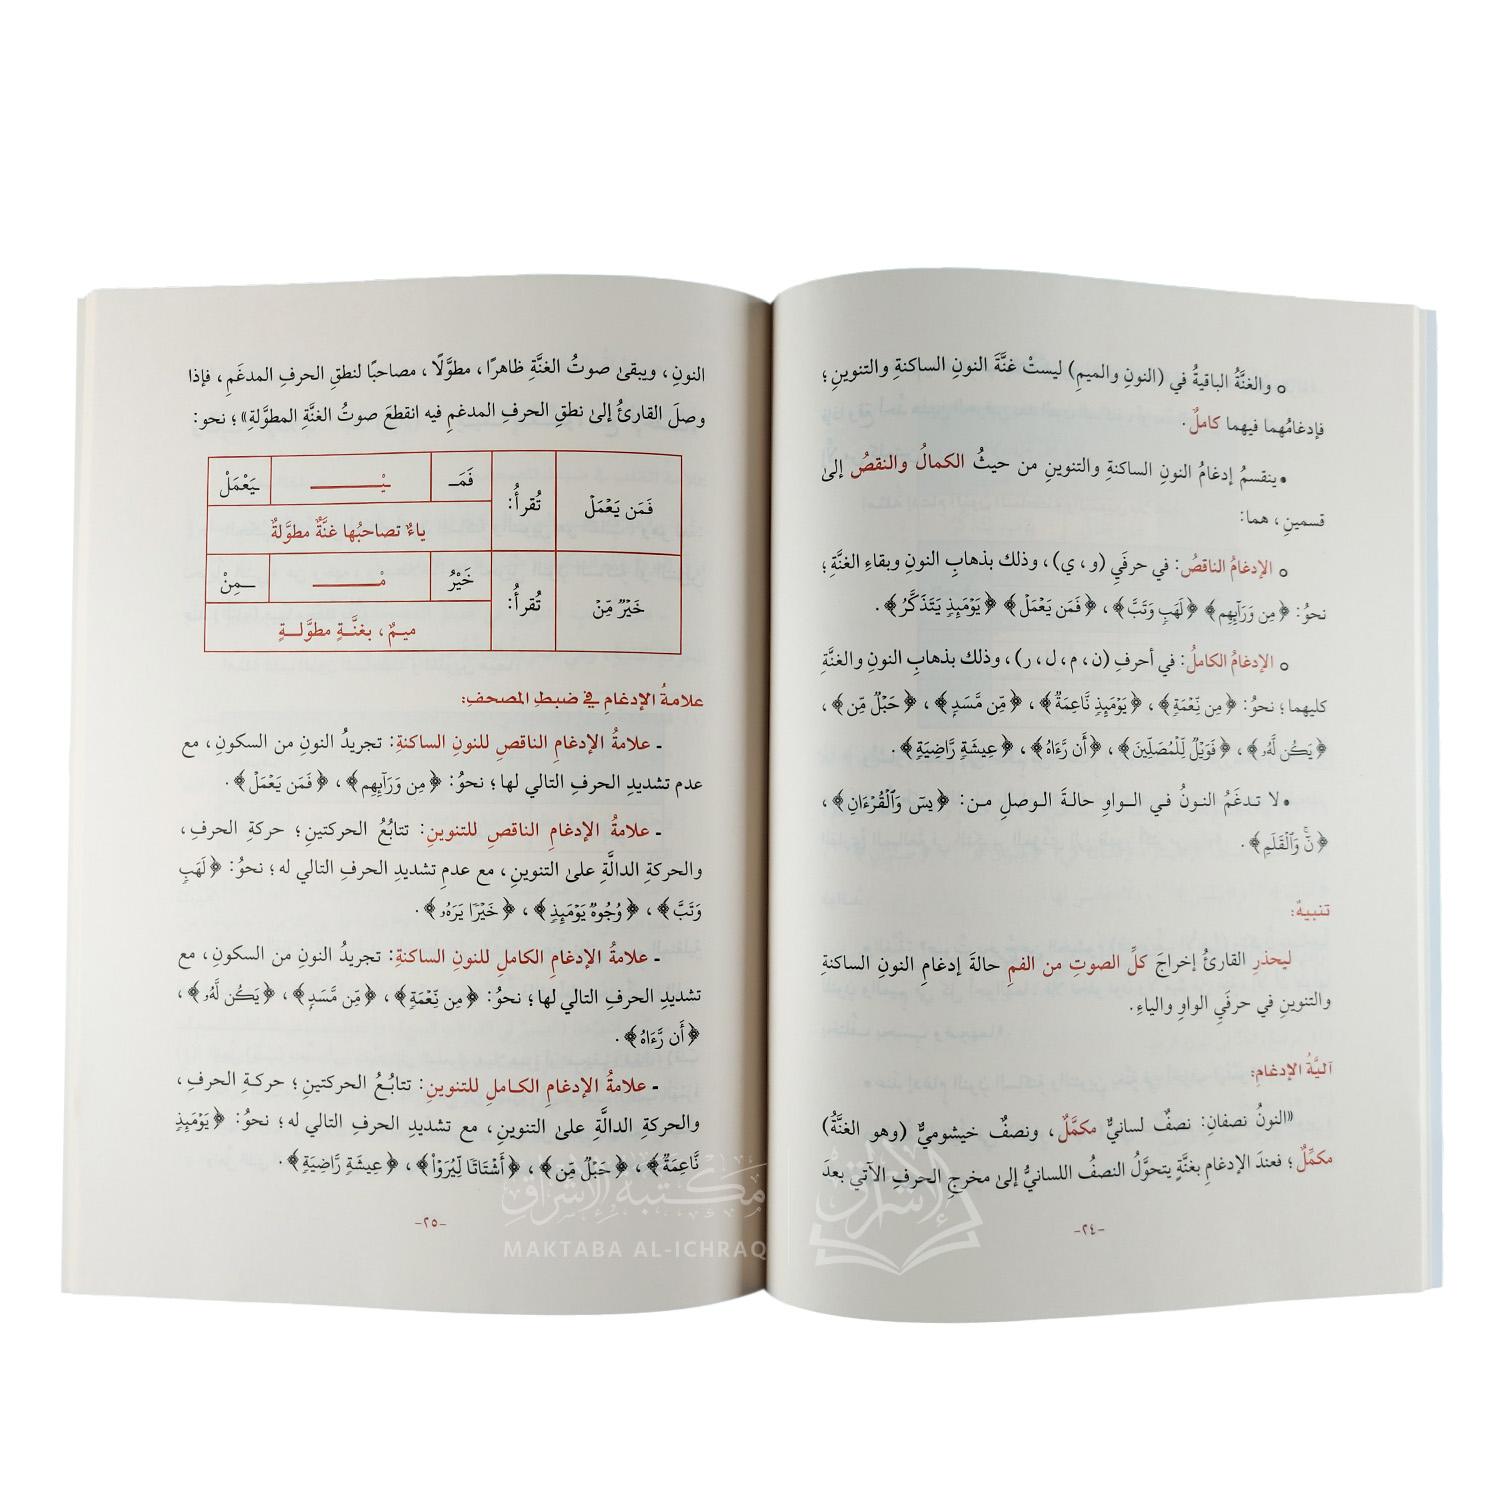 ○ والغنَّةُ الباقيةُ في (النونِ والميمِ) ليستْ غنَّةَ النونِ الساكنةِ والتنوينِ ؛
فإدغامُهما فيهما كاملٌ.
• ينقسمُ إدغامُ النونِ الساكنةِ والتنوينِ من حيثُ الكمالُ والنقصُ إلىٰ
قسمينِ ، هما:
○ الإدغامُ الناقصُ: في حرفَيِ (و ، ي) ، وذلك بذهابِ النونِ وبقاءِ الغنَّةِ ؛
نحوُ: ﴿مِن وَرَآئِهِم﴾ ﴿لَهَبٖ وَتَبَّ﴾ ، ﴿فَمَن يَعۡمَلۡ﴾ ﴿يَوۡمَئِذٖ يَتَذَكَّرُ﴾ .
○ الإدغامُ الكاملُ: في أحرفِ (ن ، م ، ل ، ر) ، وذلك بذهابِ النونِ والغنَّةِ
كليهما ؛ نحوُ: ﴿مِن نِّعۡمَةٖ﴾ ، ﴿يَوۡمَئِذٖ نَّاعِمَةٞ﴾ ، ﴿مِّن مَّسَدِۭ﴾ ، ﴿حَبۡلٞ مِّن﴾ ،
﴿يَكُن لَّهُۥ﴾ ، ﴿فَوَيۡلٞ لِّلۡمُصَلِّينَ﴾ ، ﴿أَن رَّءَاهُ﴾ ، ﴿عِيشَةٖ رَّاضِيَةٖ﴾ .
• لا تدغَمُ النونُ في الواوِ حالةَ الوصلِ من: ﴿يسٓ وَٱلۡقُرۡءَانِ﴾ ،
﴿نٓۚ وَٱلۡقَلَمِ﴾ .
تنبيهٌ:
ليحذرِ القارئُ إخراجَ كلِّ الصوتِ من الفمِ حالةَ إدغامِ النونِ الساكنةِ
والتنوينِ في حرفَيِ الواوِ والياءِ.
آليَّةُ الإدغامِ:
«النونُ نصفانِ: نصفٌ لسانيٌّ مكمَّلٌ ، ونصفٌ خيشوميٌّ (وهو الغنَّةُ)
مكمِّلٌ ؛ فعندَ الإدغامِ بغنَّةٍ يتحوَّلُ النصفُ اللسانيُّ إلىٰ مخرجِ الحرفِ الآتي بعدَ
-٢٤-
النونِ ، ويبقىٰ صوتُ الغنَّةِ ظاهرًا ، مطوَّلًا ، مصاحبًا لنطقِ الحرفِ المدغَمِ ، فإذا
وصلَ القارئُ إلىٰ نطقِ الحرفِ المدغمِ فيه انقطعَ صوتُ الغنَّةِ المطوَّلةِ» ؛ نحوُ:
فَمَن يَعۡمَلۡ تُقرأُ: فَمَـ ـيْـــــ ـيَعْمَلْ
ياءٌ تصاحبُها غنَّةٌ مطوَّلةٌ
خَيۡرٞ مِّنۡ تُقرأُ: خَيْرُ مْـــــ ـــمِنْ
ميمٌ ، بغنَّةٍ مطوَّلةٍ
علامةُ الإدغامِ في ضبطِ المصحفِ:
- علامةُ الإدغامِ الناقصِ للنونِ الساكنةِ: تجريدُ النونِ من السكونِ ، مع
عدمِ تشديدِ الحرفِ التالي لها ؛ نحوُ: ﴿مِن وَرَآئِهِم﴾ ، ﴿فَمَن يَعۡمَلۡ﴾ .
- علامةُ الإدغامِ الناقصِ للتنوينِ: تتابُعُ الحركتينِ ؛ حركةِ الحرفِ،
والحركةِ الدالَّةِ علىٰ التنوينِ ، مع عدمِ تشديدِ الحرفِ التالي له ؛ نحوُ: ﴿لَهَبٖ
وَتَبَّ﴾ ، ﴿وُجُوهٞ يَوۡمَئِذٖ﴾ ، ﴿خَيۡرٗا يَرَهُۥ﴾ .
- علامةُ الإدغامِ الكاملِ للنونِ الساكنةِ: تجريدُ النونِ من السكونِ ، مع
تشديدِ الحرفِ التالي لها ؛ نحوُ: ﴿مِن نِّعۡمَةٖ﴾ ، ﴿مِّن مَّسَدِۭ﴾ ، ﴿يَكُن لَّهُۥ﴾ ،
﴿أَن رَّءَاهُ﴾ .
- علامةُ الإدغامِ الكاملِ للتنوينِ: تتابُعُ الحركتينِ ؛ حركةِ الحرفِ ،
والحركةِ الدالَّةِ علىٰ التنوينِ ، مع تشديدِ الحرفِ التالي له ؛ نحوُ: ﴿يَوۡمَئِذٖ
نَّاعِمَةٞ﴾ ، ﴿حَبۡلٞ مِّن﴾ ، ﴿أَشۡتَاتٗا لِّيُرَوۡاْ﴾ ، ﴿عِيشَةٖ رَّاضِيَةٖ﴾ .
-٢٥-
الإشراق
مكتبة الإشراق
MAKTABA AL-ICHRAQ